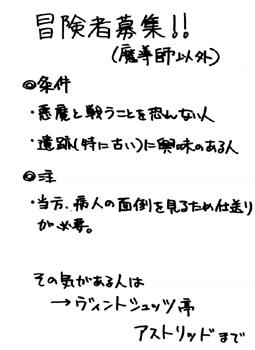 冒険者募集!!
(魔導師以外)
◎条件
・悪魔と戦うことを恐れない人
・遺跡(特に古い)に興味のある人
◎注
・当方、病人の面倒を見るため仕送り
が必要。
その気がある人は
→ヴィントシュッツ亭
アストリッドまで